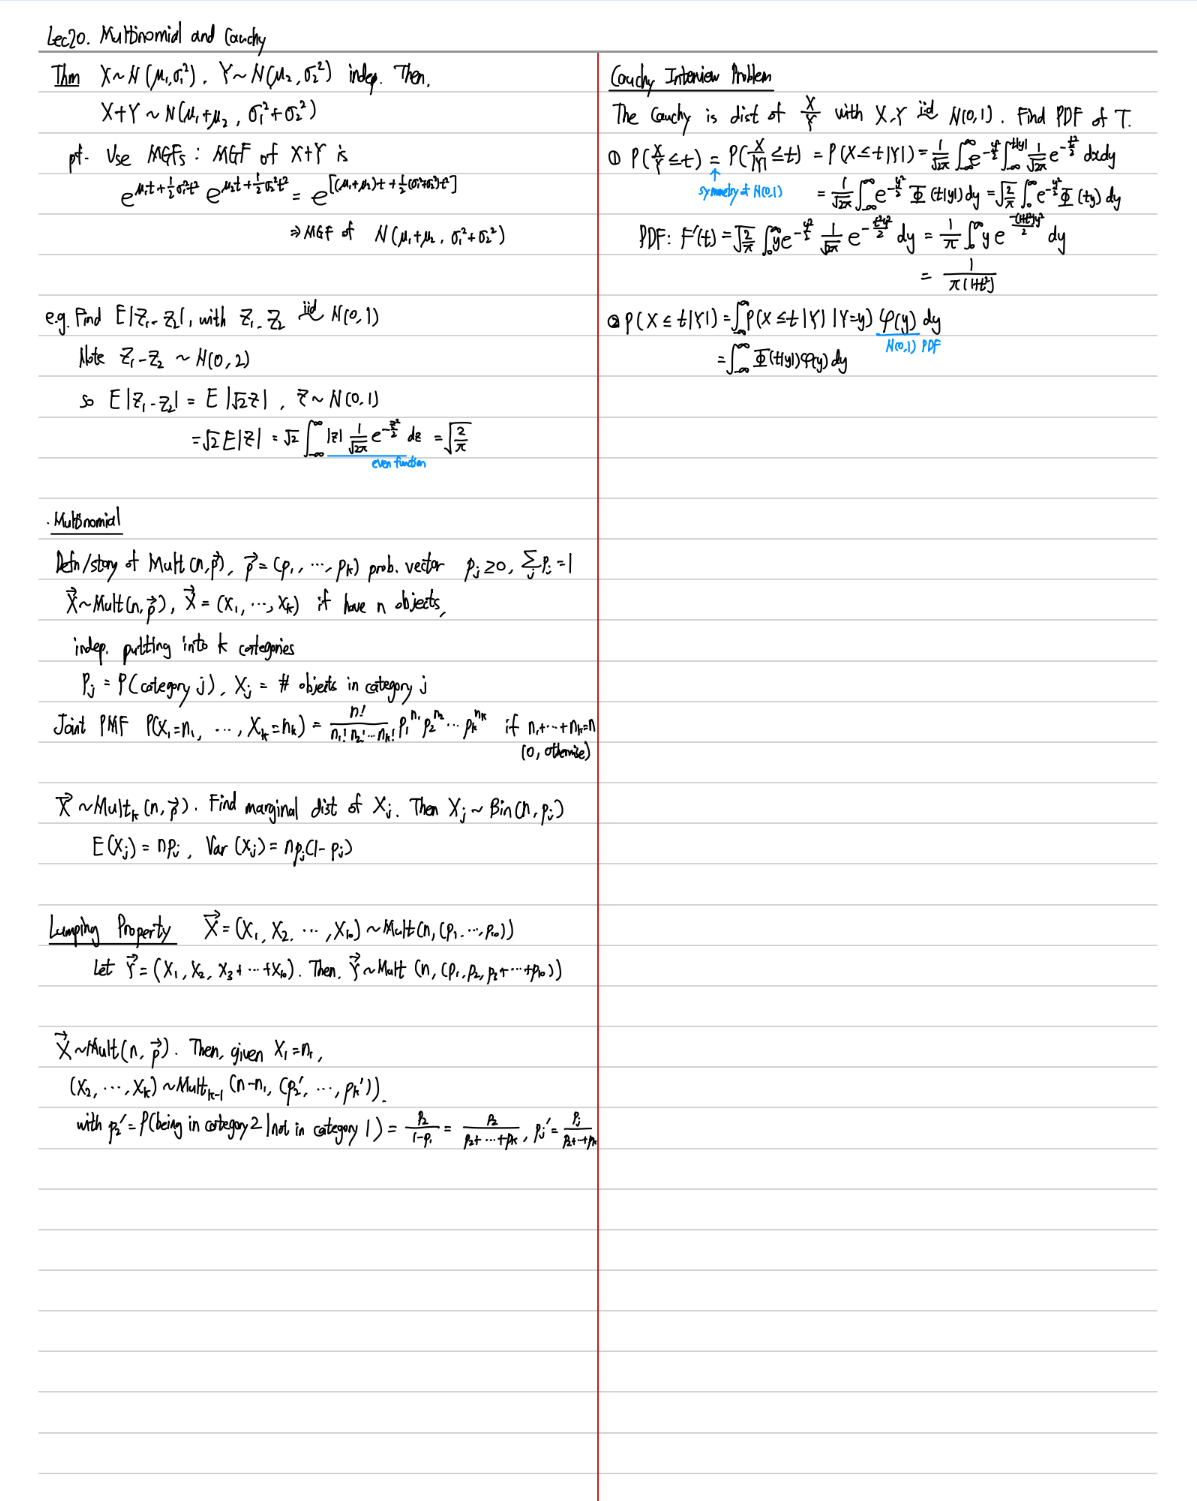 Lec20. Multinomial and Cauchy
Thm X~N(μ₁,σ₁²), Y~N(μ₂,σ₂²) indep. Then,
X+Y ~ N(μ₁+μ₂, σ₁²+σ₂²)
pf- Use MGFs : MGF of X+Y is
e^{μ₁t+½σ₁²t²} e^{μ₂t+½σ₂²t²} = e^{[(μ₁+μ₂)t+½(σ₁²+σ₂²)t²]}
⇒ MGF of N(μ₁+μ₂, σ₁²+σ₂²)
e.g. Find E|Z₁-Z₂|, with Z₁, Z₂ iid N(0,1)
Note Z₁-Z₂ ~ N(0,2)
so E|Z₁-Z₂| = E|√2Z|, Z~N(0,1)
=√2E|Z| = √2 ∫_{-∞}^{∞} |z| 1/√(2π) e^{-z²/2} dz = √(2/π)
even function
· Multinomial
Defn/story of Mult(n,p⃗), p⃗=(p₁, ···, pₖ) prob. vector pⱼ≥0, Σⱼpⱼ=1
X⃗~Mult(n,p⃗), X⃗=(X₁, ···, Xₖ) if have n objects,
indep. putting into k categories
Pⱼ = P(category j), Xⱼ = # objects in category j
Joint PMF P(X₁=n₁, ···, Xₖ=nₖ) = n!/(n₁!n₂!···nₖ!) p₁^{n₁} p₂^{n₂} ··· pₖ^{nₖ} if n₁+···+nₖ=n
(0, otherwise)
X⃗ ~Multₖ(n,p⃗). Find marginal dist of Xⱼ. Then Xⱼ ~ Bin(n,pⱼ)
E(Xⱼ) = npⱼ, Var(Xⱼ) = npⱼ(1-pⱼ)
Lumping Property X⃗=(X₁, X₂, ···, X₁₀) ~Mult(n,(p₁, ···, p₁₀))
Let Y⃗=(X₁, X₂, X₃+···+X₁₀). Then, Y⃗~Mult (n,(p₁,p₂,p₃+···+p₁₀))
X⃗~Mult(n,p⃗). Then, given X₁=n₁,
(X₂, ···, Xₖ) ~Multₖ₋₁ (n-n₁, (p₂', ···, pₖ')).
with p₂' = P(being in category 2 | not in category 1) = p₂/(1-p₁) = p₂/(p₂+···+pₖ), pⱼ' = pⱼ/(p₂+···+pₖ)
Cauchy Interview Problem
The Cauchy is dist of X/Y with X,Y iid N(0,1). Find PDF of T.
① P(X/Y ≤t) = P(X/|Y| ≤t) = P(X≤t|Y|) = 1/√(2π) ∫_{-∞}^{∞} e^{-y²/2} ∫_{-∞}^{t|y|} 1/√(2π) e^{-x²/2} dxdy
symmetry of N(0,1)
= 1/√(2π) ∫_{-∞}^{∞} e^{-y²/2} Φ(t|y|) dy = √(2/π) ∫_0^{∞} e^{-y²/2} Φ(ty) dy
PDF: F'(t) = √(2/π) ∫_0^{∞} ye^{-y²/2} 1/√(2π) e^{-t²y²/2} dy = 1/π ∫_0^{∞} ye^{-(1+t²)y²/2} dy
= 1/(π(1+t²))
② P(X≤t|Y|) = ∫_{-∞}^{∞} P(X≤t|Y| |Y=y) φ(y) dy
N(0,1) PDF
= ∫_{-∞}^{∞} Φ(t|y|)φ(y) dy